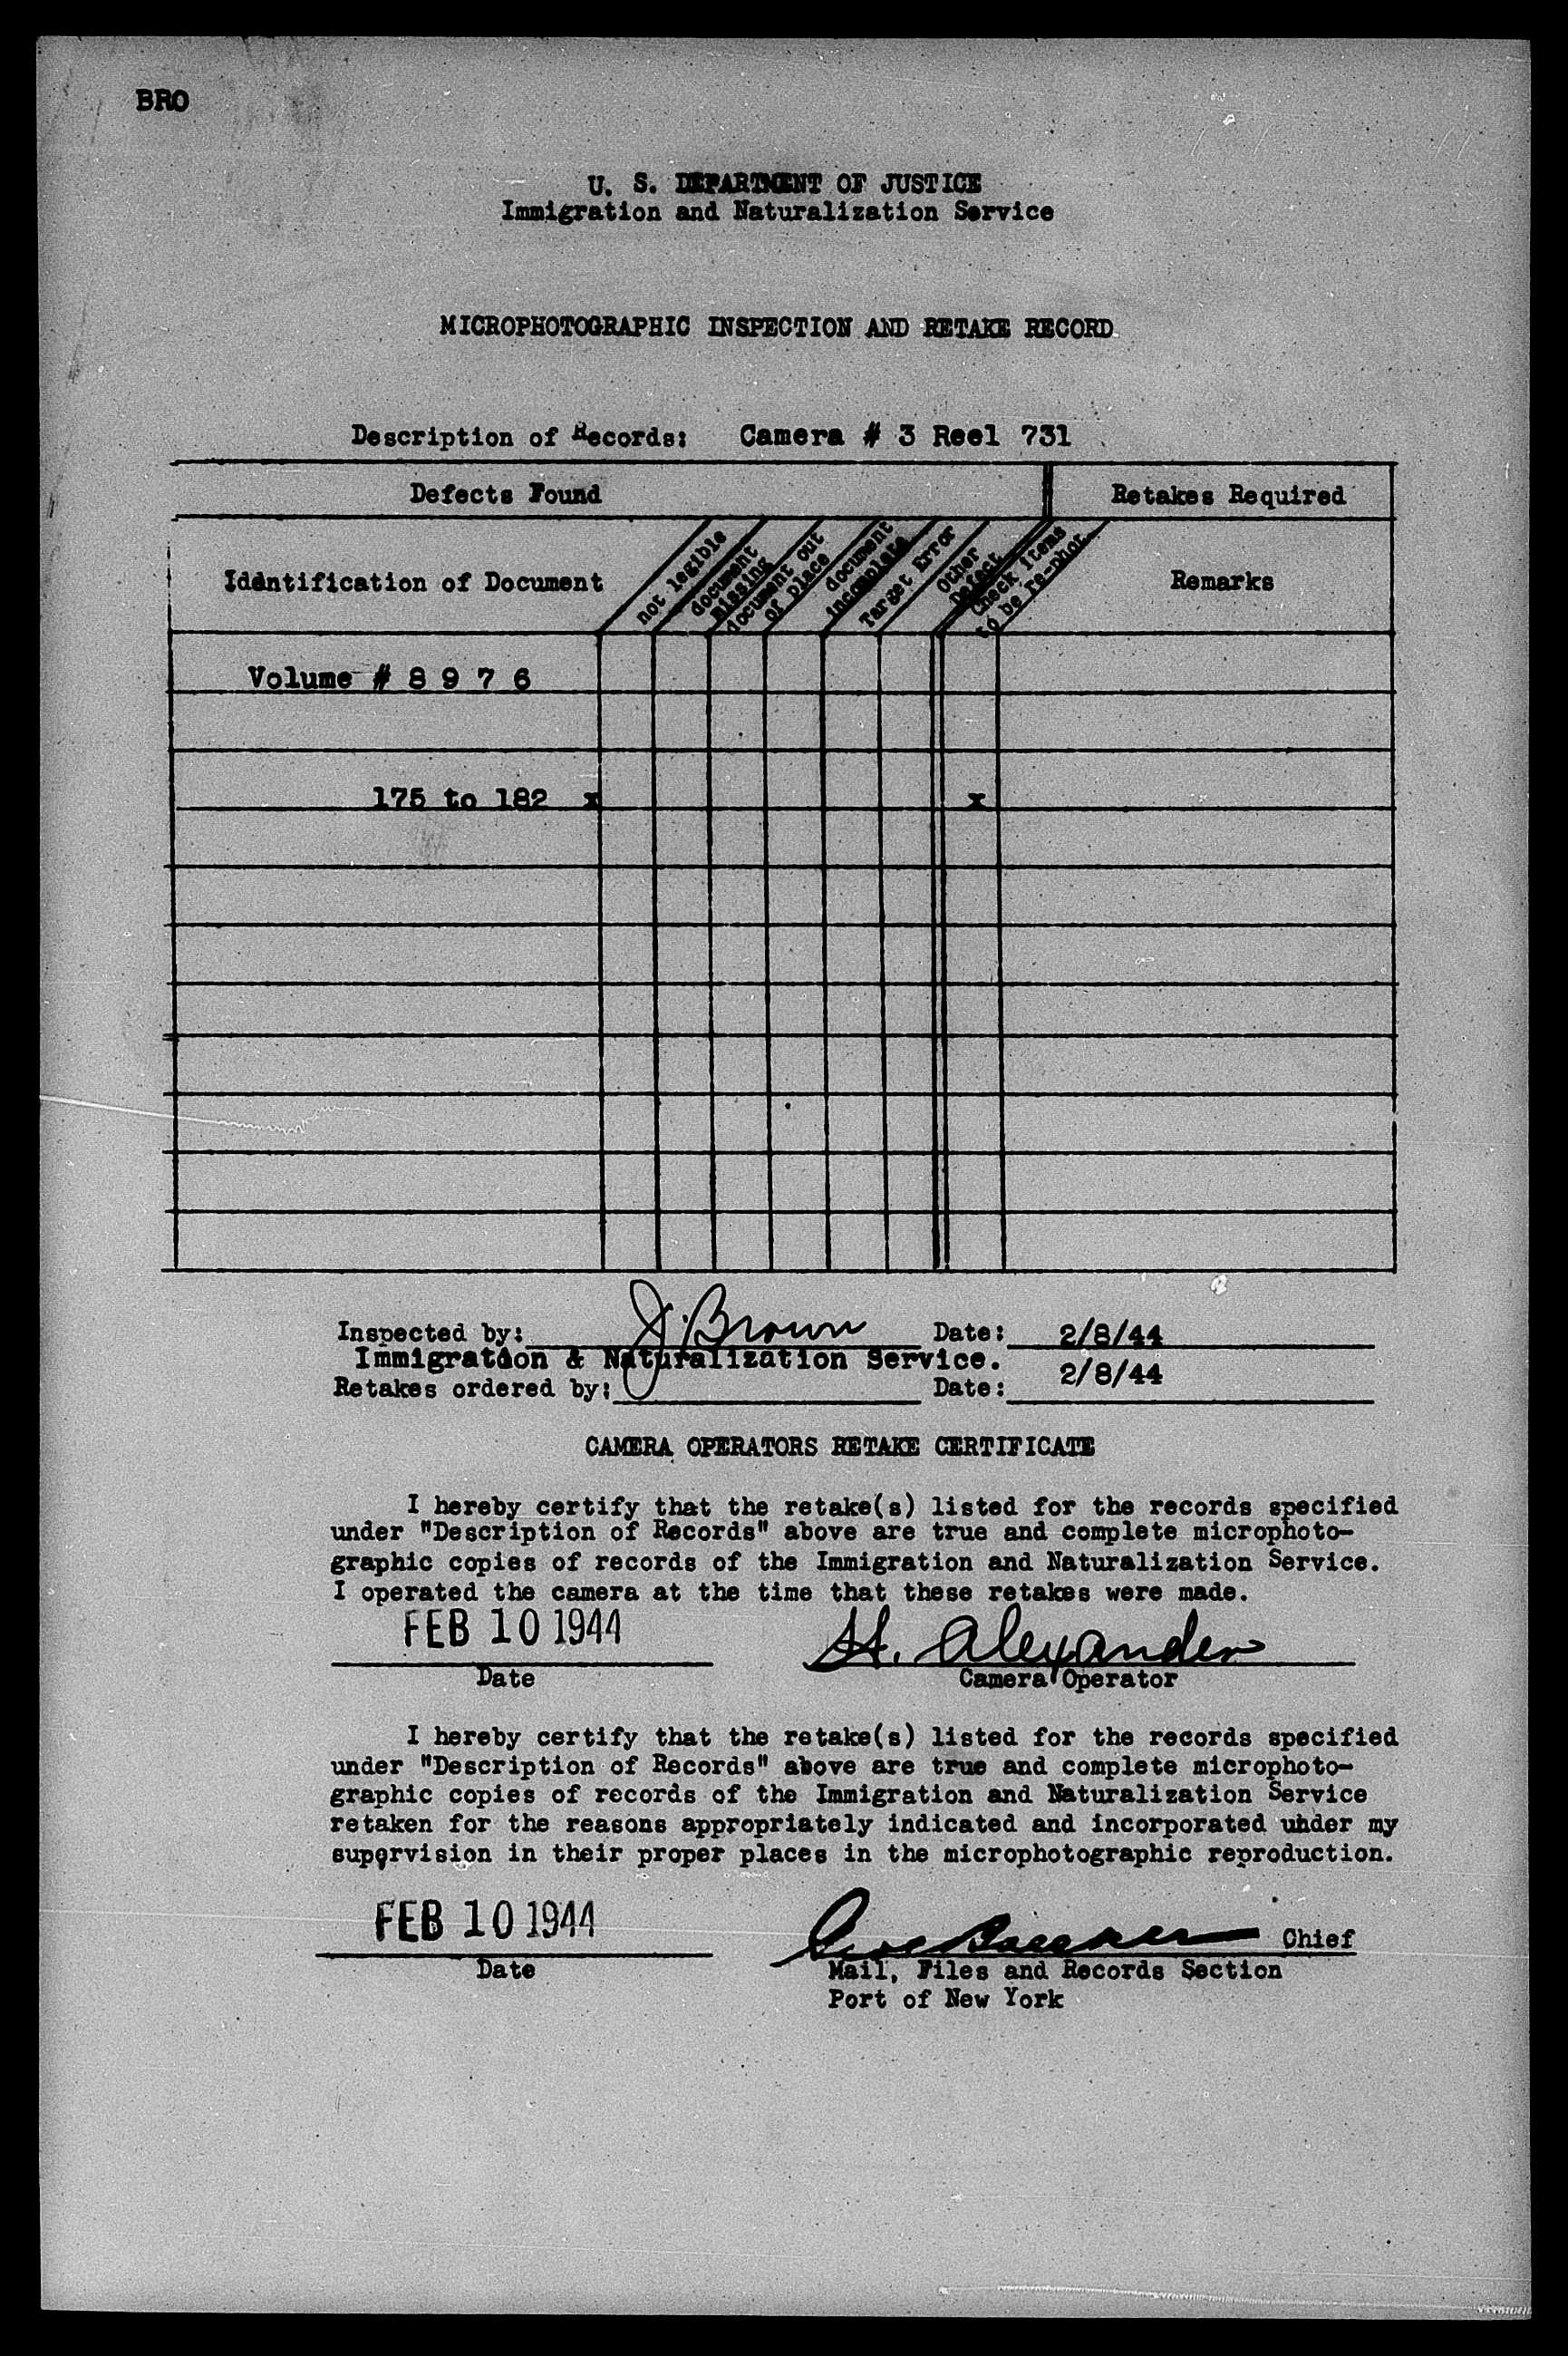 BRO
U. S. DEPARTMENT OF JUSTICE
Immigration and Naturalization Service
MICROPHOTOGRAPHIC INSPECTION AND RETAKE RECORD
Description of Records: Camera # 3 Reel 731
Defects Found Retakes Required
Iddntification of Document not legible document missing document out of place document incomplete Target Error Other Defect Check Items to be re-phot. Remarks
Volume # 8 9 7 6
175 to 182 x x
Inspected by: J. Brown Date: 2/8/44
Immigration & Naturalization Service.
Retakes ordered by: Date: 2/8/44
CAMERA OPERATORS RETAKE CERTIFICATE
I hereby certify that the retake(s) listed for the records specified
under "Description of Records" above are true and complete microphoto-
graphic copies of records of the Immigration and Naturalization Service.
I operated the camera at the time that these retakes were made.
FEB 10 1944 H. Alexander
Date Camera Operator
I hereby certify that the retake(s) listed for the records specified
under "Description of Records" above are true and complete microphoto-
graphic copies of records of the Immigration and Naturalization Service
retaken for the reasons appropriately indicated and incorporated under my
supervision in their proper places in the microphotographic reproduction.
FEB 10 1944 Chief
Date Mail, Files and Records Section
Port of New York